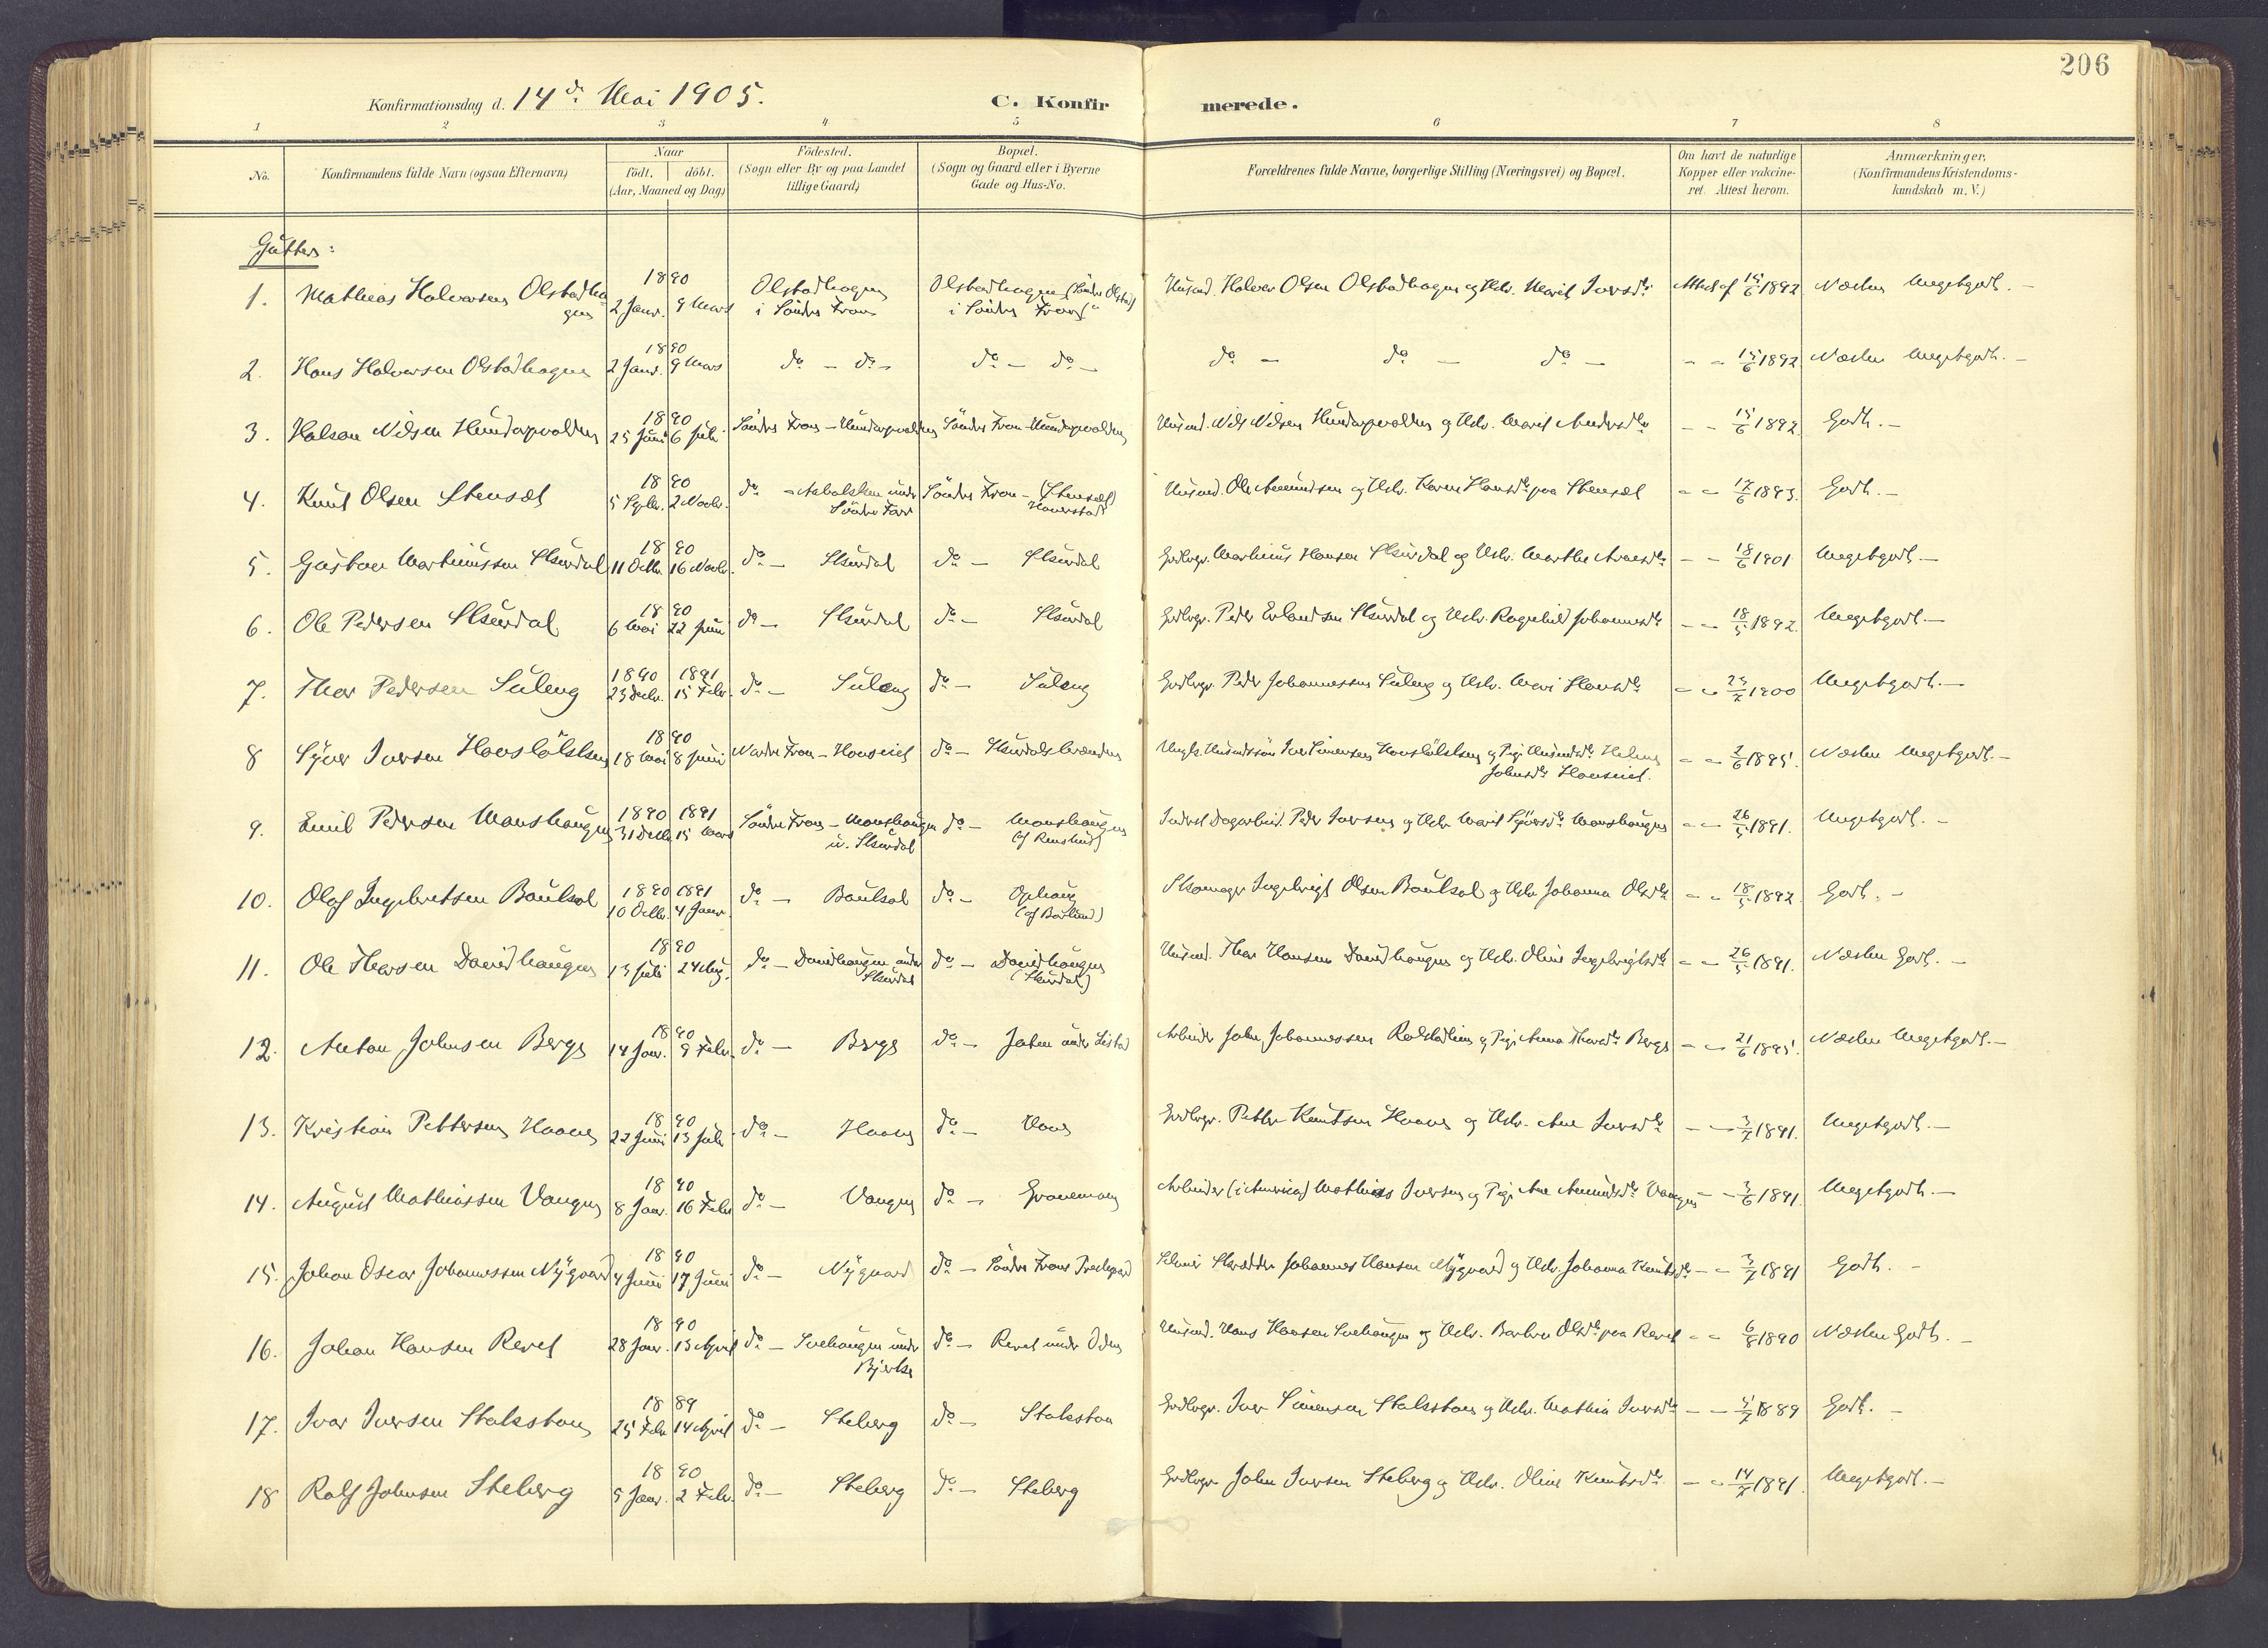 206
Konfirmationsdag d. 14de Mai 1905. C. Konfirmerede.
1 2 3 4 5 6 7 8
No. Konfirmandens fulde Navn (ogsaa Efternavn) Naar födt. döbt. (Aar, Maaned og Dag) Födested. (Sogn eller By og paa Landet tillige Gaard) Bopæl. (Sogn og Gaard eller i Byerne Gade og Hus-No. Forældrenes fulde Navne, borgerlige Stilling (Næringsvei) og Bopæl. Om havt de naturlige Kopper eller vakcineret. Attest herom. Anmærkninger. (Konfirmandens Kristendomskundskab m. V.)
Gutter:
1. Mathias Halvorsen Olstadhagen 1890 2 Janr. 9 Mars Olstadhagen i Söndre Fron Olstadhagen (Söndre Olstad) i Söndre Fron Husmd. Halvor Olsen Olstadhagen og Hstr. Marit Iversdtr Attest af 15/6 1892 Næsten Megetgodt. -
2. Hans Halvorsen Olstadhagen 1890 2 Janr. 9 Mars do - do - do - do - do - do - do - - - 15/6 1892 Næsten Megetgodt. -
3. Nilsen Hundorpvolden 1890 25 Juni 6 Juli Söndre Fron - Hundorpvolden Söndre Fron - Hundorpvolden Husmd. Nils Nilsen Hundorpvolden og Hstr. Marit Andersdtr - - 15/6 1892. Godt. -
4. Knut Olsen Stensæt 1890 5 Septbr. 2 Novbr. do - under Söndre Söndre Fron - (Stensæt) Husmd. Ole Amundsen og Hstr. Karen Hansdtr paa Stensæt - - 17/6 1893. Godt. -
5. Gustav Martinussen Skurdal 1890 11 Octbr. 16 Novbr. do - Skurdal do - Skurdal Grdbrgr. Martinus Hansen Skurdal og Hstr. Marthe - - 18/6 1901 Megetgodt. -
6. Ole Pedersen Skurdal 1890 6 Mai 22 Juni do - Skurdal do - Skurdal Grdbrgr. Peder Erlandsen Skurdal og Hstr. Ragnhild Johannesdtr - - 18/5 1892. Megetgodt. -
7. Thor Pedersen Suleng 1890 1891 23 Decbr. 15 Febr. do - Suleng do - Suleng Grdbrgr. Peder Johannessen Suleng og Hstr. Mari Hansdtr - - 23/7 1900 Megetgodt. -
8 Syver Iversen 1890 18 Mai 8 Juni Nordre Fron - do - Ungk. Husmdssön Iver Simensen og Pige Johnsdtr - - 2/6 1895. Næsten Megetgodt. -
9. Emil Pedersen Monshaugen 1890 1891 31 Decbr. 15 Mars Söndre Fron - Monshaugen u. Skurdal do - Monshaugen Inderst Dagarbeid. Peder Iversen og Hstr Marit Syversdtr Monshaugen - - 26/5 1891. Megetgodt. -
10. Olaf Ingebretsen Baukhol 1890 1891 10 Octbr. 4 Janr. do - Baukhol do - Ophaug Skomager Ingebrigt Olsen Baukhol og Hstr Johanna Olsdtr - - 18/5 1892 Godt. -
11. Ole Thorsen Davidhaugen 1890 13 Juli 24 Aug. do - Davidhaugen under Skurdal do - Davidhaugen (Skurdal) Husmd. Thor Hansen Davidhaugen og Hstr. Oline Ingebrigtsdtr - - 26/5 1891. Næsten Godt. -
12. Anton Johnsen Berge 1890 14 Janr. 9 Febr. do - Berge do - under Listad Arbeider John Johannessen og Pige Anna Thorsdtr Berge - - 21/6 1895. Næsten Megetgodt. -
13. Kristian Pettersen Haave 1890 22 Juni 13 Juli do - Haave do - Haave Grdbrgr. Petter Knutsen Haave og Hstr. Ane Iversdtr - - 3/7 1891. Megetgodt. -
14. August Mathiassen Vangen 1890 8 Janr. 16 Febr do - Vangen do - Arbeider (i Amerika) Mathias Iversen og Pige Ane Amundsdtr Vangen - - 3/6 1891. Megetgodt. -
15. Johan Oscar Johannessen Nygaard 1890 4 Juni 17 Juni do - Nygaard do - Söndre Frons Prestegaard Skrædder Johannes Hansen Nygaard og Hstr. Johanna Knutsdtr - - 3/7 1891 Godt. -
16. Johan Hansen Revet 1890 28 Janr. 13 April do - Svehaugen under Bjerke do - Revet under Oden Husmd. Hans Hansen Svehaugen og Hstr. Barbro Olsdtr paa Revet - - 6/8 1890 Næsten Godt. -
17. Ivar Iversen Stakston 1889 25 Febr 14 April do - Steberg do - Stakston Grdbrgr. Iver Simensen Stakston og Hstr. Mathia Iversdtr - - 4/7 1889 Godt. -
18 Rolf Johnsen Steberg 1890 5 Janr. 2 Febr. do - Steberg do - Steberg Grdbrgr John Iversen Steberg og Hstr. Oline Knutsdtr - - 14/7 1891. Megetgodt. -